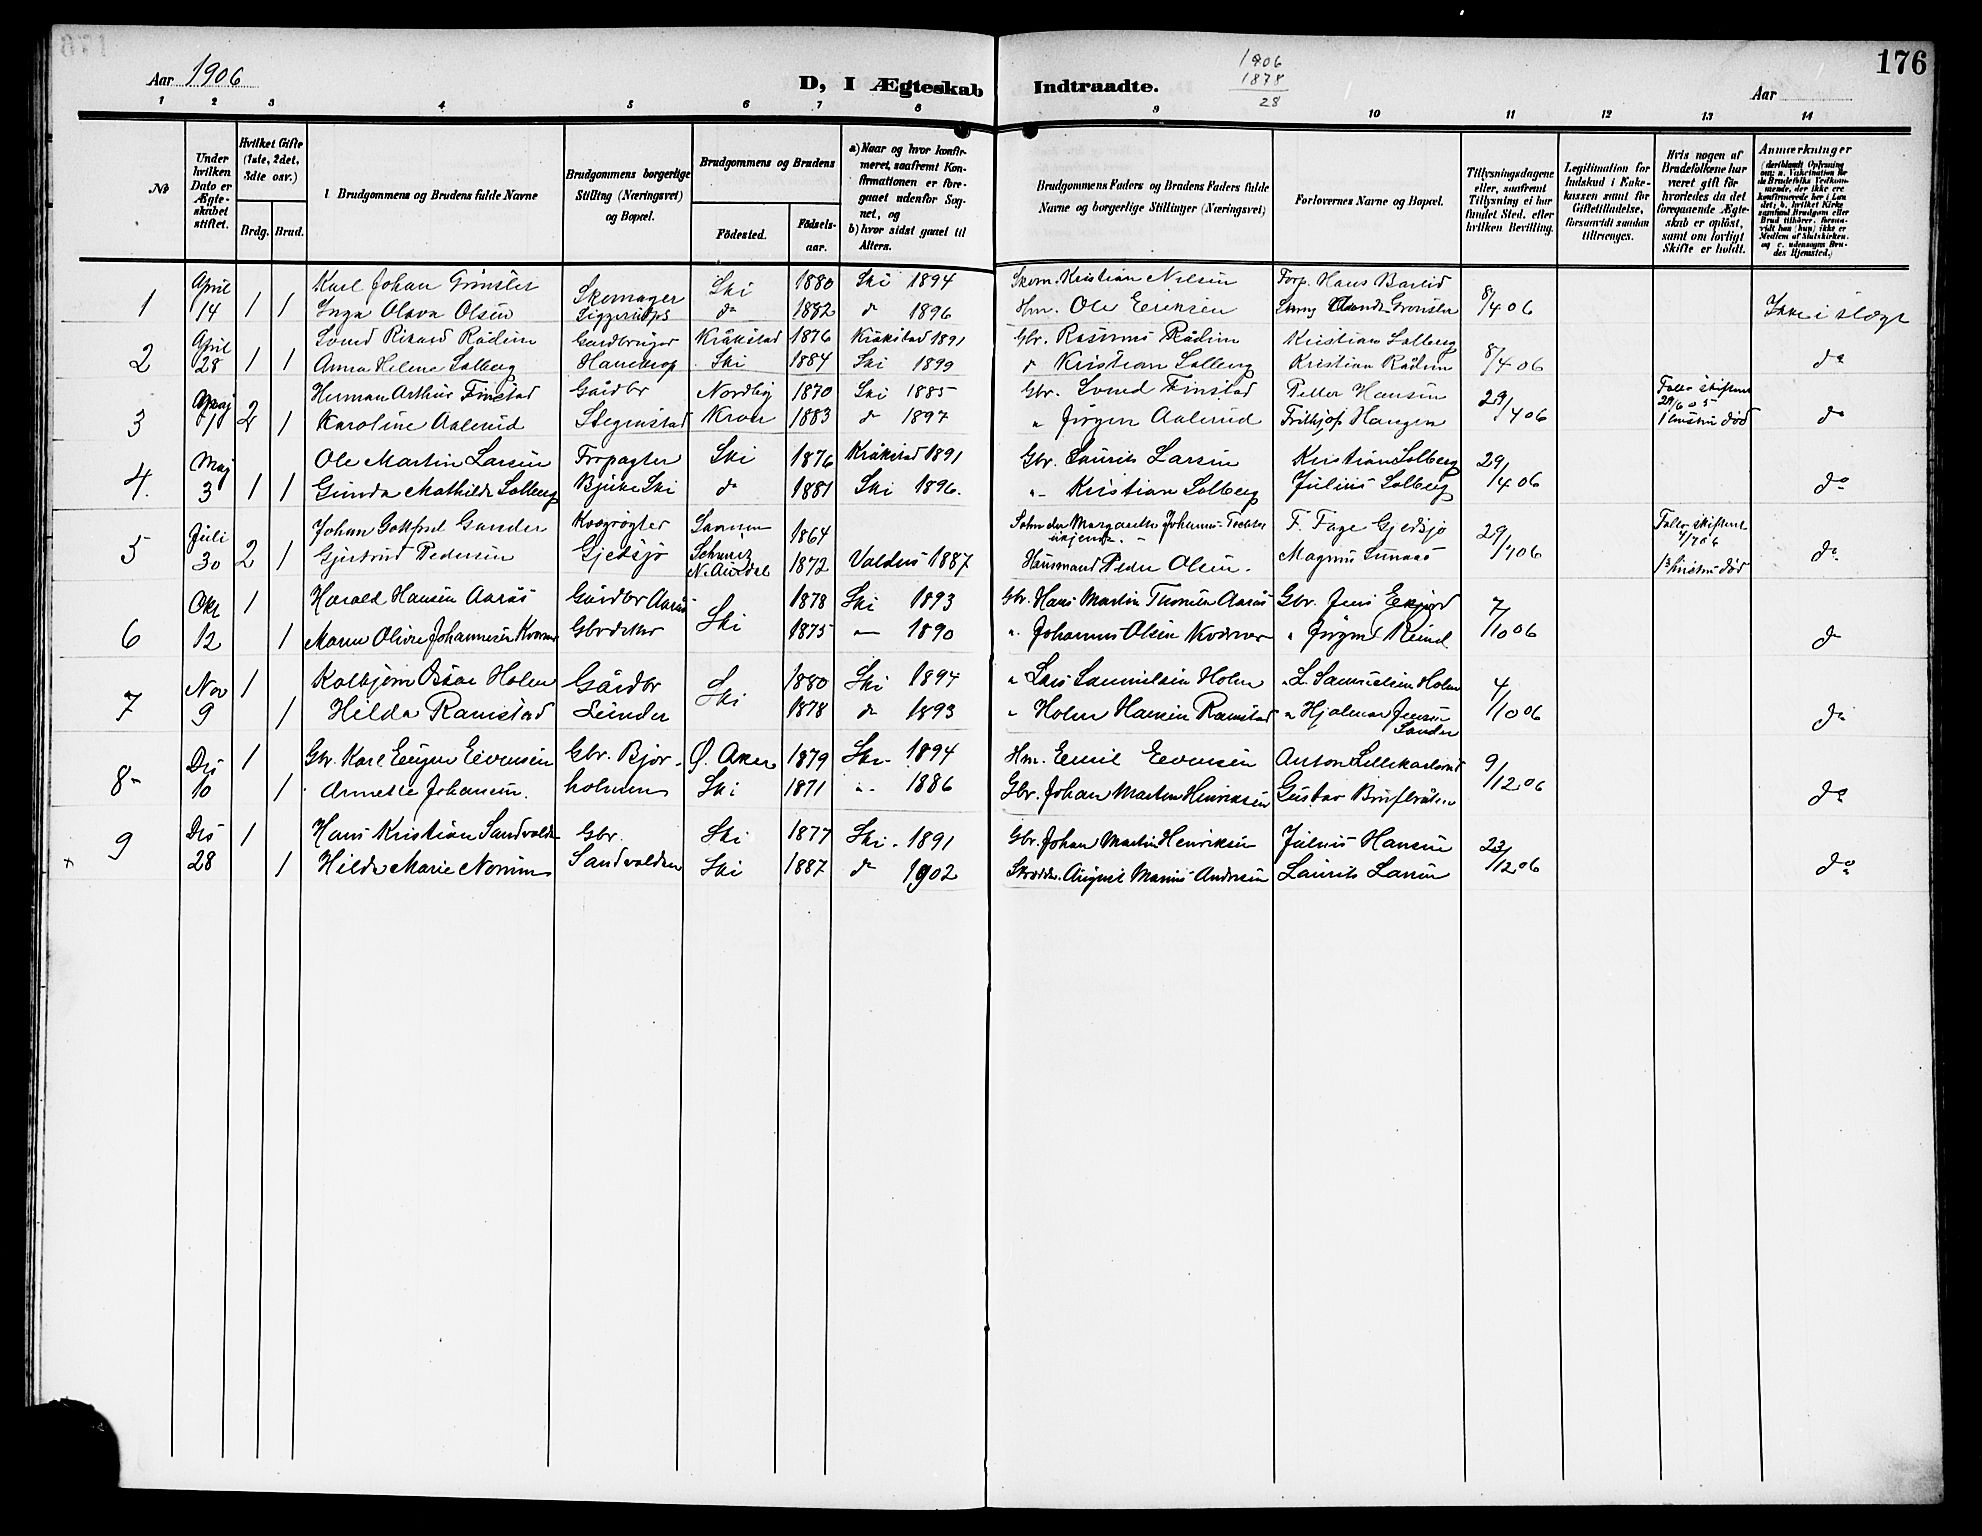 176
Aar 1906
D, I Ægteskab Indtraadte.
1906
1878
28
Aar
1 2 3 4 5 6 7 8 9 10 11 12 13 14
No
Under hvilken Dato er Ægteskabet stiftet.
Hvilket Gifte (1ste, 2det, 3die osv.)
Brdg. Brud.
Brudgommens og Brudens fulde Navne
Brudgommens borgerlige Stilling (Næringsvei) og Bopæl.
Brudgommens og Brudens
Fødested. Fødselsaar.
a) Naar og hvor konfirmeret, saafremt Konfirmationen er foregaaet udenfor Sognet, og
b) hvor sidst gaaet til Alters.
Brudgommens Faders og Brudens Faders fulde Navne og borgerlige Stillinger (Næringsvei)
Forlovernes Navne og Bopæl.
Tillysningsdagene eller, saafremt Tillysning ei har fundet Sted, efter hvilken Bevilling.
Legitimation for Indskud i Enkekassen samt for Giftetilladelse, forsaavidt saadan tiltrænges.
Hvis nogen af Brudefolkene har været gift før hvorledes da det foregaaende Ægteskab er opløst, samt om lovligt Skifte er holdt.
Anmærkninger
1 April 14 1 1 Karl Johan Grønslet Skomager Ski 1880 Ski 1894 Skom. Kristian Nilsen Forp. Hans Bareid 8/4 06
Inga Olava Olsen Siggerud do 1882 do 1896 Hm. Ole Eriksen Grønslet Ikke i slægt
2 April 28 1 1 Svend Rikard Rådim Gardbruger Kråkstad 1876 Kråkstad 1891 Gbr. Rasmus Rådim Kristian Solberg 8/4 06
Anna Helene Solberg Haugerop Ski 1884 Ski 1899 Kristian Solberg Kristian Rådim do
3 Maj 1 2 1 Herman Arthur Finstad Gårdbr Nordby 1870 Ski 1885 Gbr. Svend Finstad Petter Hansen 29/4 06
Karoline Aalerud Stegenstad Kroer 1883 do 1897 " Jørgen Aalerud Frithjof Haugen 1 hustru død do
4. Maj 3 1 1 Ole Martin Larsen Forpagter Ski 1876 Kråkstad 1891 Gbr. Laurits Larsen Kristian Solberg 29/4 06
Gunda Mathilde Solberg Bjerke Ski do 1881 Ski 1896. " Kristian Solberg Julius Solberg do
5 Juli 30 2 1 Johan Gottfred Kvægrøgter 1864 Sohn der Margarethe F. Fage Gjedsjø 29/7 06
Gjertrud Pedersen Gjedsjø Schweiz N. Aurdal 1872 Valdres 1887 Husmand Peder Olsen. Magnus 1ste hustru død do
6 Okt 12 1 Harald Hansen Aarås Gårdbr Aarås Ski 1878 Ski 1893 Gbr. Hans Martin Thomsen Aarås Gbr. Jens Ekjord 7/10 06
1 Marie Olivie Johannesen Kværner Gbrdatter 1875 " 1890 ". Johannes Olsen Kværner do
7 Nov 9 1 Kolbjørn Oskar Holm Gårdbr Ski 1880 Ski 1894 " Lars Samuelsen Holm " L. Samuelsen Holm 4/10 06
1 Hilda Ramstad Sander 1878 do 1893 " Holm Hansen Ramstad " Hjalmar Jensen Sander do
8 Des 10 1 Gbr. Karl Eugen Evensen Gbr. Bjørnholmen Ø. Aker 1879 Ski 1894 Hm. Emil Evensen Anton Lillekarlsrud 9/12 06
1 Annette Johansen. Ski 1871 " 1886 Gbr. Johan Martin Henriksen Gustav do
9 Des 28 1 Hans Kristian Sandvolden Gbr. Ski 1877 Ski. 1891 Gbr. Johan Martin Henriksen Julius Hansen 23/12 06
x 1 Hilda Marie Norum Sandvolden Ski 1887 do 1902 Skrædder. August Marius Andersen Laurits Larsen do